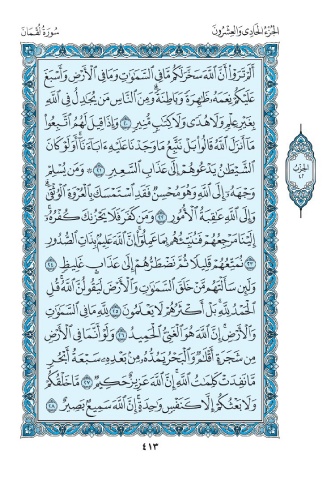 الجزء الحادي والعشرون
سورة لقمان
ألم تروا أن الله سخر لكم ما في السموات وما في الأرض وأسبغ
عليكم نعمه ظهرة وباطنة ومن الناس من يجدل في الله
بغير علم ولا هدى ولا كتب منير ٢٠ وإذا قيل لهم اتبعوا
ما أنزل الله قالوا بل نتبع ما وجدنا عليه ءاباءنا أولو كان
الشيطن يدعوهم إلى عذاب السعير ٢١ ۞ ومن يسلم
وجهه إلى الله وهو محسن فقد استمسك بالعروة الوثقى
وإلى الله عقبة الأمور ٢٢ ومن كفر فلا يحزنك كفره
إلينا مرجعهم فننبئهم بما عملوا إن الله عليم بذات الصدور
٢٣ نمتعهم قليلا ثم نضطرهم إلى عذاب غليظ ٢٤
ولئن سألتهم من خلق السموات والأرض ليقولن الله قل
الحمد لله بل أكثرهم لا يعلمون ٢٥ لله ما في السموات
والأرض إن الله هو الغني الحميد ٢٦ ولو أنما في الأرض
من شجرة أقلم والبحر يمده من بعده سبعة أبحر
ما نفدت كلمت الله إن الله عزيز حكيم ٢٧ ما خلقكم
ولا بعثكم إلا كنفس وحدة إن الله سميع بصير ٢٨
الحزب
٤٢
٤١٣